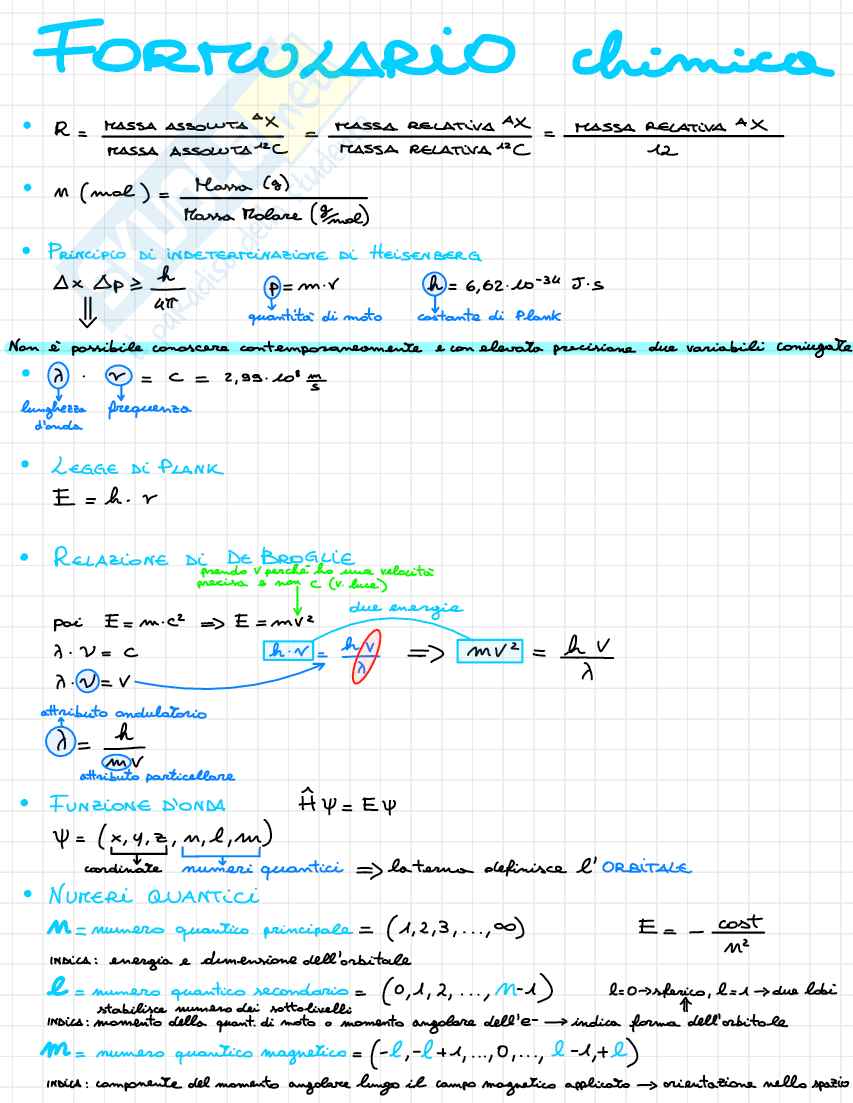 FORMULARIO chimica
• R = MASSA ASSOLUTA ᴬX / MASSA ASSOLUTA ¹²C = MASSA RELATIVA ᴬX / MASSA RELATIVA ¹²C = MASSA RELATIVA ᴬX / 12
• n (mol) = Massa (g) / Massa Molare (g/mol)
• PRINCIPIO DI INDETERMINAZIONE DI HEISENBERG
Δx Δp ≥ h / 4π    p = m·v    h = 6,62·10⁻³⁴ J·s
⇓ quantità di moto    costante di Plank
Non è possibile conoscere contemporaneamente e con elevata precisione due variabili coniugate
• λ · ν = c = 2,99·10⁸ m/s
lunghezza d'onda    frequenza
• LEGGE DI PLANK
E = h · ν
• RELAZIONE DI DE BROGLIE
prendo v perché ho una velocità
precisa e non c (v. luce)
poi E = m·c² ⇒ E = mv²    due energie
λ · ν = c    h·ν = h v / λ ⇒ mv² = h v / λ
λ · ν = v
attributo ondulatorio
λ = h / mv
attributo particellare
• FUNZIONE D'ONDA    Ĥψ = Eψ
ψ = (x, y, z, n, l, m)
coordinate    numeri quantici ⇒ la terna definisce l'ORBITALE
• NUMERI QUANTICI
n = numero quantico principale = (1, 2, 3, ..., ∞)    E = − cost / n²
INDICA: energia e dimensione dell'orbitale
l = numero quantico secondario = (0, 1, 2, ..., n-1)    l=0 → sferico, l=1 → due lobi
stabilisce numero dei sottolivelli
INDICA: momento della quant. di moto o momento angolare dell'e- → indica forma dell'orbitale
m = numero quantico magnetico = (-l, -l+1, ..., 0, ..., l-1, +l)
INDICA: componente del momento angolare lungo il campo magnetico applicato → orientazione nello spazio